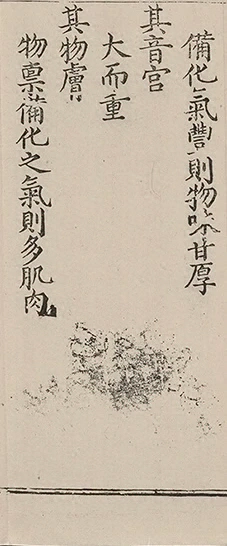 備化氣豐則物味甘厚
其音宮
大而重
其物膚
物禀備化之氣則多肌肉